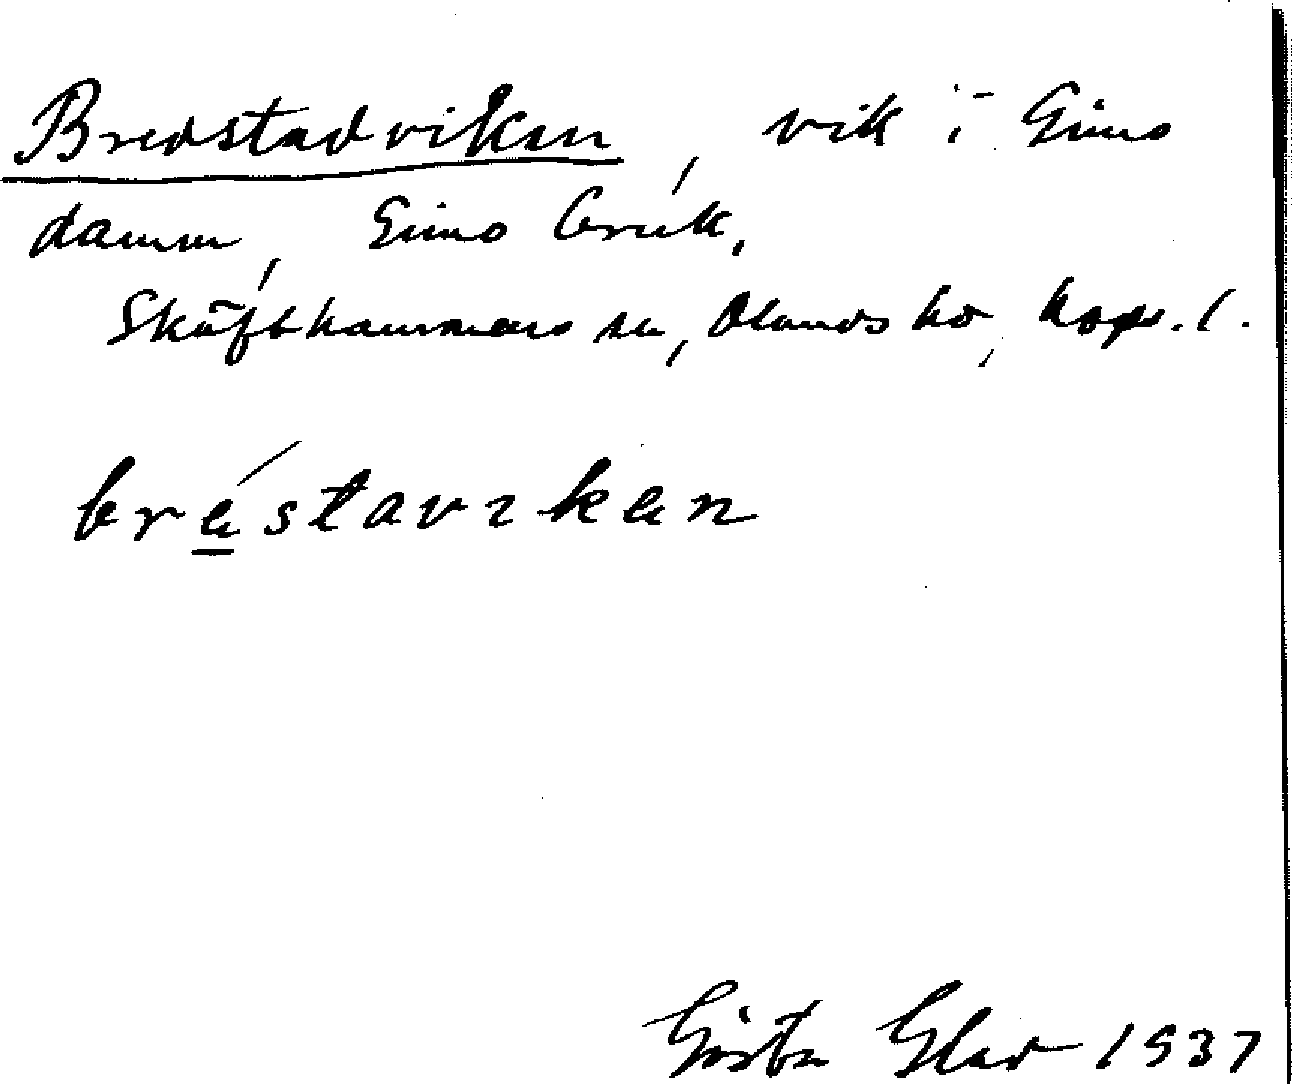 Bredstadviken, vik i Gimo
damm, Gimo bruk,
Skäfthammars sn, Olands hd, Upps. l.
bréstaviken
Gösta Glad 1937